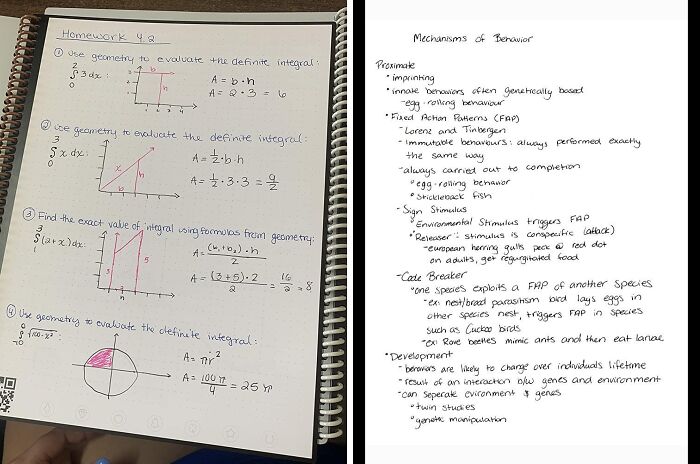 Homework 4.2
① Use geometry to evaluate the definite integral:
2
∫ 3 dx:
0
b
h
A = b·h
A = 2·3 = 6
② Use geometry to evaluate the definite integral:
3
∫ x dx:
0
x
h
b
A = 1/2·b·h
A = 1/2·3·3 = 9/2
③ Find the exact value of integral using formulas from geometry:
3
∫ (2+x)dx:
1
3
5
h
A = (b₁+b₂)·h / 2
A = (3+5)·2 / 2 = 16/2 = 8
④ Use geometry to evaluate the definite integral:
0
∫ √100-x² :
-10
A = πr²
A = 100π/4 = 25π
Mechanisms of Behavior
Proximate
• imprinting
• innate behaviors often genetically based
- egg-rolling behaviour
• Fixed Action Patterns (FAP)
- Lorenz and Tinbergen
- Immutable behaviours: always performed exactly
the same way
- always carried out to completion
° egg-rolling behavior
° Stickleback fish
- Sign Stimulus
° Environmental Stimulus triggers FAP
° "Releaser": stimulus is conspecific (attack)
- european herring gulls peck @ red dot
on adults, get regurgitated food
- Code Breaker
° one species exploits a FAP of another species
- ex: nest/brood parasitism bird lays eggs in
other species nest, triggers FAP in species
such as Cuckoo birds
- ex: Rove beetles mimic ants and then eat larvae
• Development
- behaviors are likely to change over individuals lifetime
- result of an interaction b/w genes and environment
- can seperate evironment & genes
° twin studies
° genetic manipulation